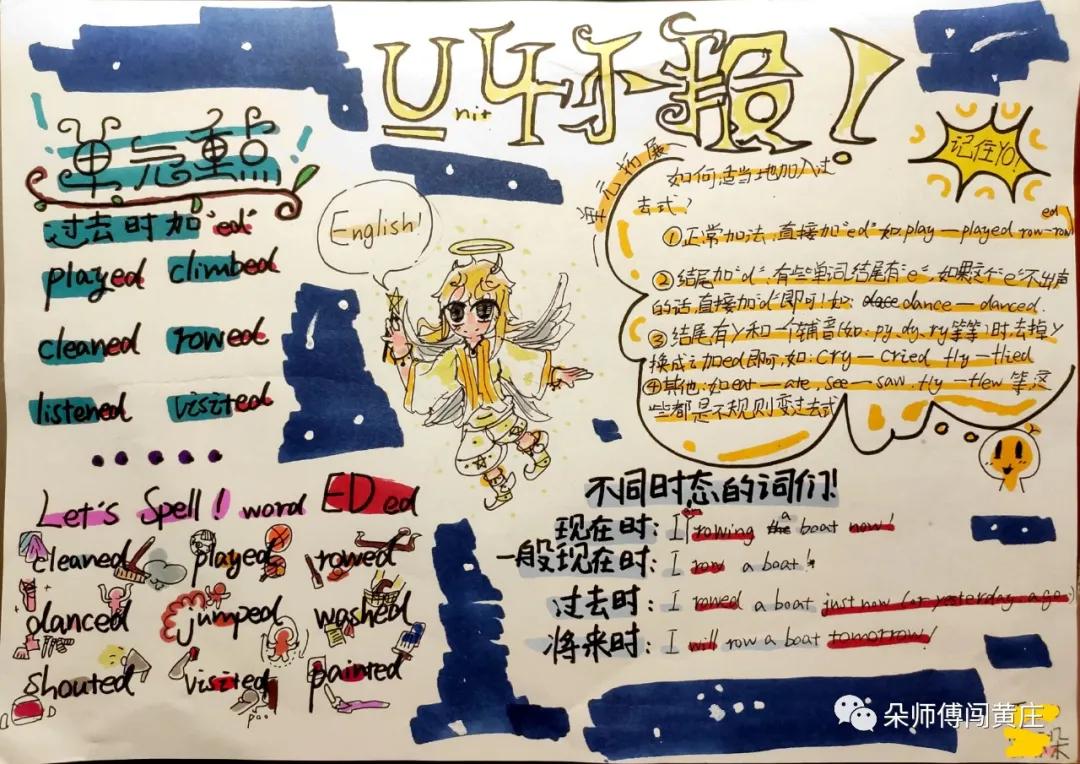 Unit 4 小报!
单元重点
过去时加"ed"
played climbed
cleaned rowed
listened visited
Let's Spell! word ED ed
cleaned played rowed
danced jumped washed
shouted visited painted
English!
记住YO!
单元拓展
如何适当地加入过
去式?
①正常加法,直接加"ed"如,play—played row-row
ed
②结尾加"d":有些单词结尾有"e",如果这个"e"不出声
的话,直接加"d"即可!如: dance—danced.
③结尾有y和一个辅音(如:py,dy,ry等等)时去掉y
换成i加ed即可,如:cry—cried fly—flied
④其他:如eat—ate,see—saw,fly—flew等,这
些都是不规则变过去式
不同时态的词们!
现在时: I rowing a boat now!
一般现在时: I row a boat!
过去时: I rowed a boat just now (or yesterday. ago)
将来时: I will row a boat tomorrow!
朵师傅闯黄庄
朵